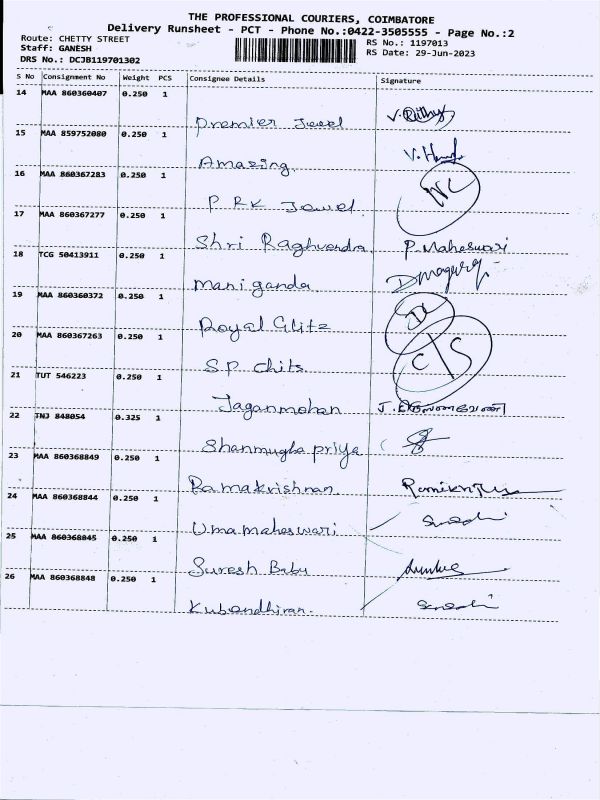 THE PROFESSIONAL COURIERS, COIMBATORE
Delivery Runsheet - PCT - Phone No.:0422-3505555 - Page No.:2
Route: CHETTY STREET
RS No.: 1197013
Staff: GANESH
RS Date: 29-Jun-2023
DRS No.: DCJB119701302
S No Consignment No Weight PCS Consignee Details Signature
14 MAA 860360407 0.250 1
Premier Jewel
15 MAA 859752080 0.250 1
Amazing
16 MAA 860367283 0.250 1
P RK Jewel
17 MAA 860367277 0.250 1
Shri Raghvendra P. Maheswari
18 TCG 50413911 0.250 1
Maniganda
19 MAA 860360372 0.250 1
Royal Glitz
20 MAA 860367263 0.250 1
S.P Chits C/S
21 TUT 546223 0.250 1
Jaganmohan
22 TNJ 848054 0.325 1
Shanmugha priya
23 MAA 860368849 0.250 1
Ramakrishnan
24 MAA 860368844 0.250 1
Umamaheswari
25 MAA 860368845 0.250 1
Suresh Babu
26 MAA 860368848 0.250 1
Kubendhiran.